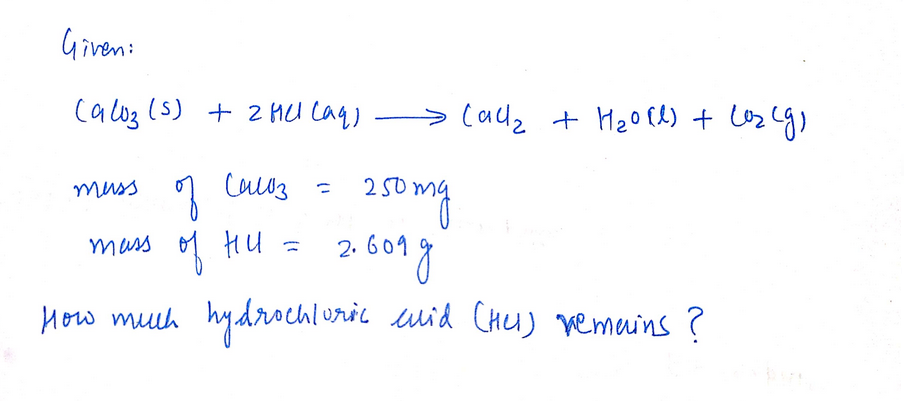 Given:
CaCO3 (s) + 2 HCl (aq) ⟶ CaCl2 + H2O (l) + CO2 (g)
mass of CaCO3 = 250 mg
mass of HCl = 2.609 g
How much hydrochloric acid (HCl) remains?